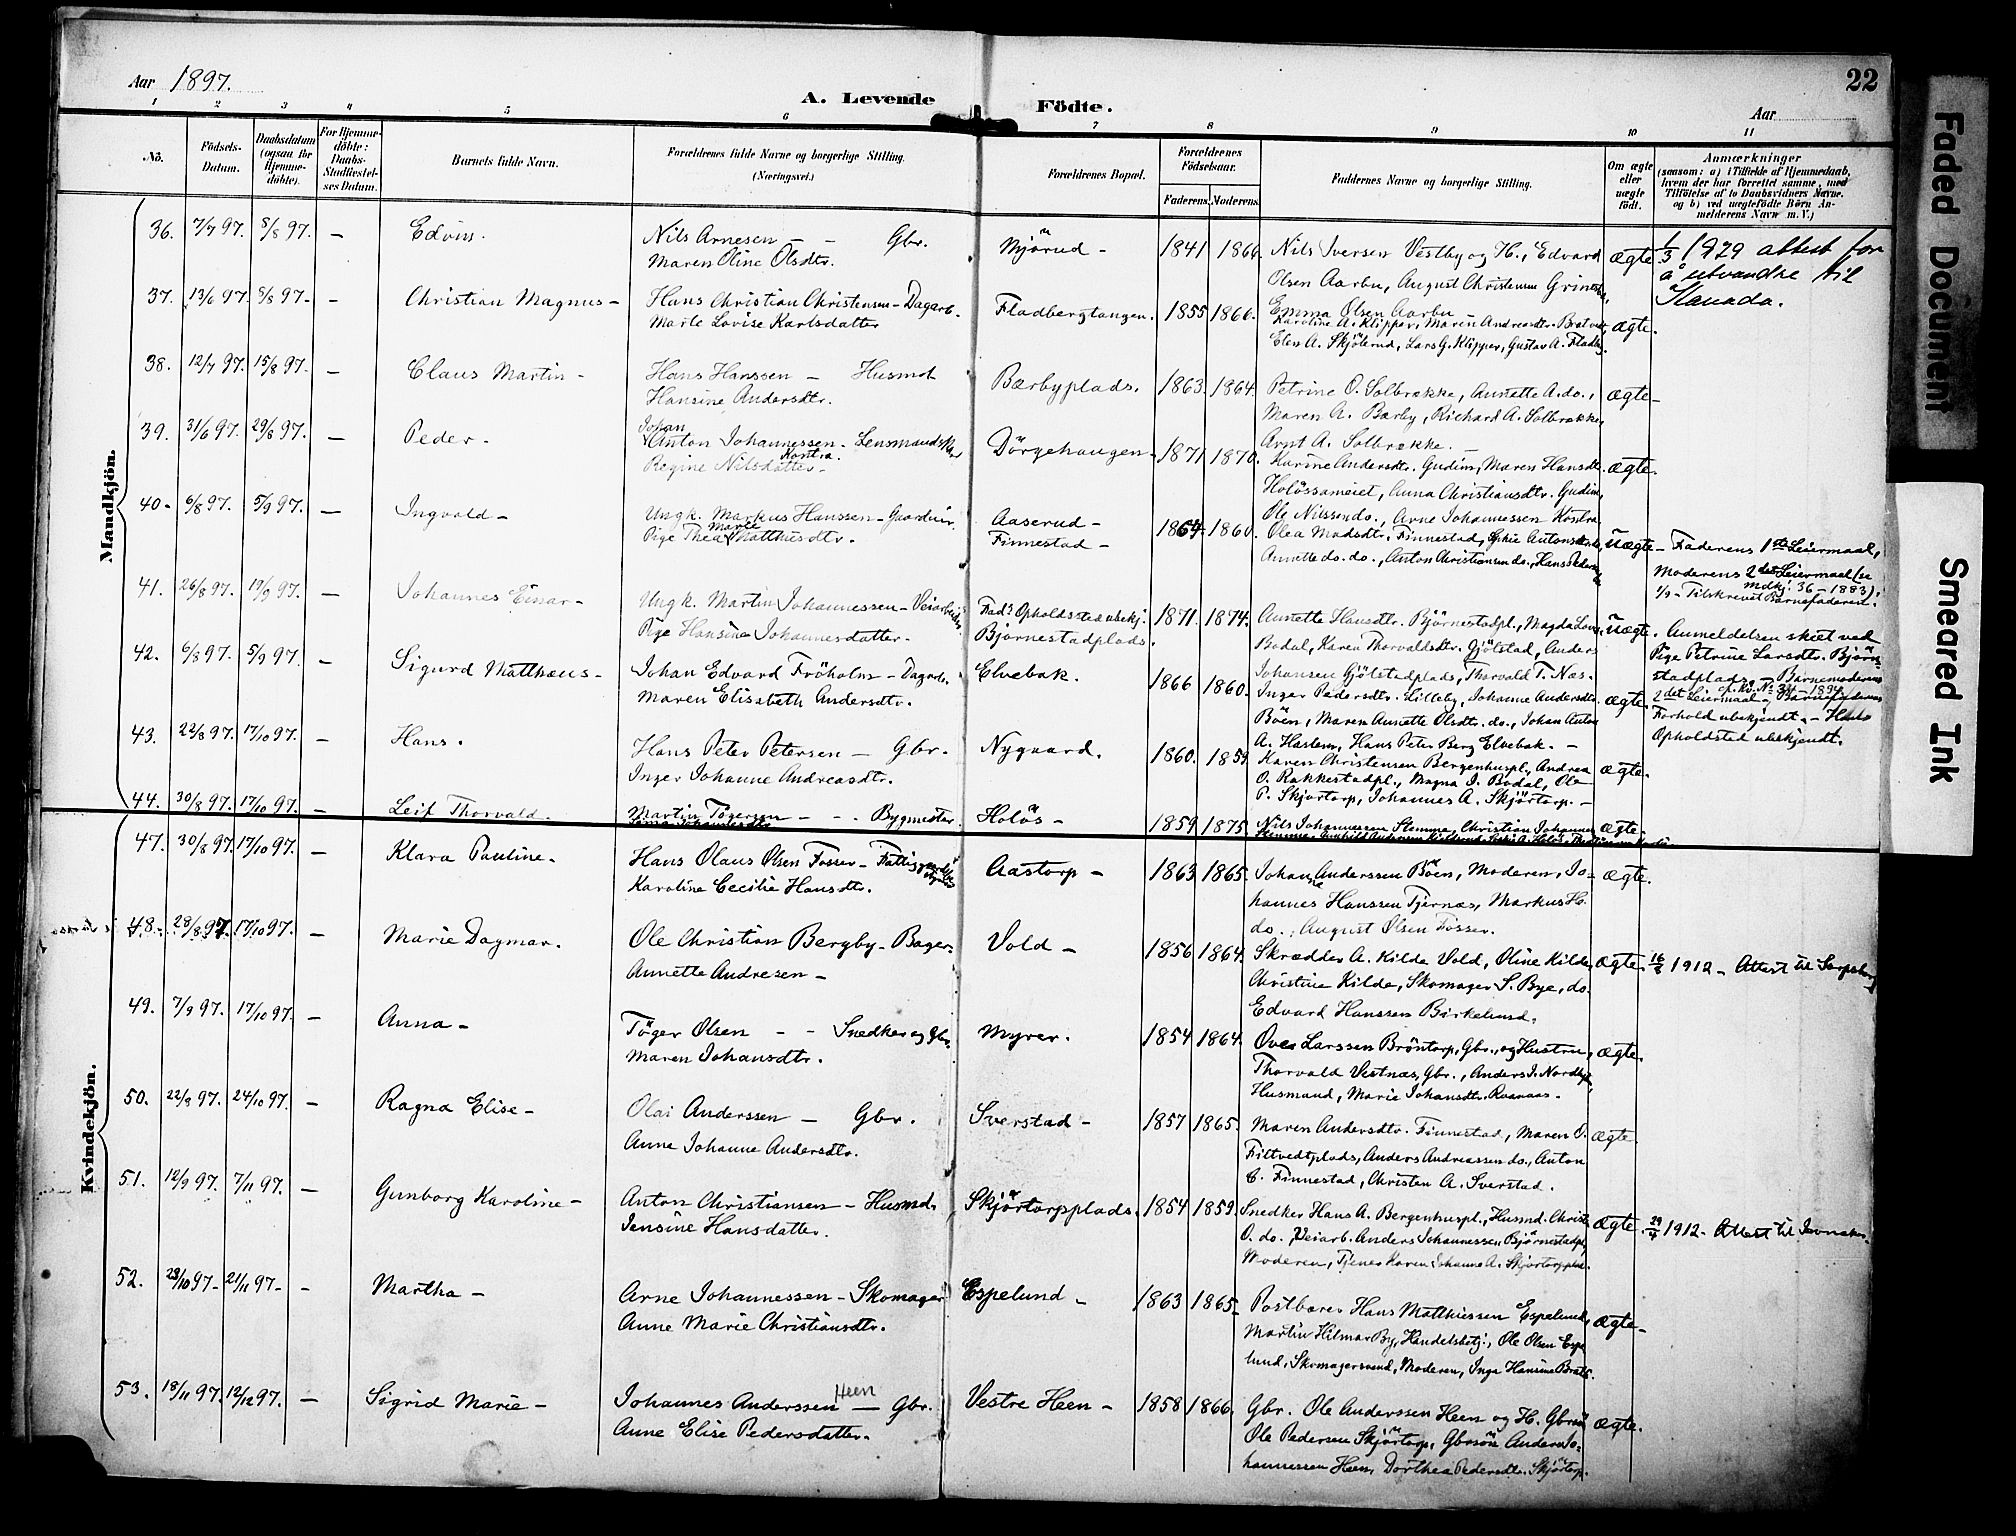 Aar 1897.
A. Levende Födte.
Aar
22
1 2 3 4 5 6 7 8 9 10 11
No.
Födsels-Datum.
Daabsdatum (ogsaa for Hjemme-döbte).
For Hjemme-döbte: Daabs-Stadfæstel-ses Datum.
Barnets fulde Navn.
Forældrenes fulde Navne og borgerlige Stilling. (Næringsvei.)
Forældrenes Bopæl.
Forældrenes Födselsaar.
Faderens. Moderens.
Faddernes Navne og borgerlige Stilling.
Om ægte eller uægte födt.
Anmærkninger
(saasom: a) i Tilfælde af Hjemmedaab, hvem der har forrettet samme, med Tilföielse af to Daabsvidners Navne, og b) ved uægtefödte Börn Anmelderens Navn m. V.)
Mandkjön.
36. 7/7 97. 8/8 97. – Edvin. Nils Arnesen – – Gbr. Mjörud – 1841 1866 Nils Iversen Vestby og H., Edvard ægte 1/3 1929 attest for
Maren Oline Olsdtr. Olsen Aarbu, August Christensen å utvandre til
Kanada.
37. 13/6 97 8/8 97. – Christian Magnus – Hans Christian Christensen – Dagarb. Fladbergtangen. 1855 1866. Emma Olsen Aarbu ægte.
Marte Lovise Karlsdatter Karoline A. Klipper, Maren Andreasdtr.
Elen A. Skjölerud, Lars G. Klipper, Gustav A.
38. 12/7 97. 15/8 97. – Claus Martin – Hans Hanssen – Husmd. Bærbyplads. 1863. 1864. Petrine O. Solbrække, Annette A. do., ægte –
Hansine Andersdtr. Maren A. Bærby, Richard A. Solbrække,
Arnt A. Solbrække. –
39. 31/6 97. 29/8 97. – Peder. Johan Anton Johannessen – Dörgehaugen. 1871 1870. Karine Andersdtr. Gudim, Maren Hansdtr. ægte.
Regine Nilsdatter – Kontra. Holössameiet, Anna Christiansdtr. Gudim,
Ole Nilssen do., Arne Johannessen Kontra
40 – 6/8 97. 5/9 97. – Ingvald – Ungk. Markus Hanssen – Aaserud – 1864. 1860. Olea Madsdtr. Finnestad, uægte – Faderens 1ste Leiermaal,
Pige Thea Marie Matthisdtr. Finnestad – Annette do. do., Anton Christiansen do., Moderens 2det Leiermaal (se
mdkj. 36 – 1883).
Tilskrevet Barnefaderen.
41. 26/8 97. 19/9 97. – Johannes Einar – Ungk. Martin Johannessen – Veiarbeider. Fad's Opholdsted ubekj. 1871. 1874. Annette Hansdtr. Björnestadpl., uægte. Anmeldelsen skeet ved
Pige Hansine Johannesdatter. Björnestadplads. Bodal, Karen Thorvaldsdtr. Gjölstad, Anders Pige Petrine Larsdtr. Björne-
Johansen Gjölstadplads, Thorvald T. Næs. stadplads – Barnemoderens
2det Leiermaal,
Forhold ubekjendt. – Hans
Opholdsted ubekjendt.
42. 6/8 97. 5/9 97. – Sigurd Matthæus – Johan Edvard Fröholm – Dagarb. Elvebak. 1866 1860. Inger Pedersdtr. Lilleby, Johanne Andersdtr. ægte.
Maren Elisabeth Andersdtr. Böen, Maren Annette Olsdtr. do., Johan Anton
A. Haslem, Hans Peter Berg Elvebak. –
43. 22/8 97. 17/10 97. – Hans. Hans Peter Petersen – Gbr. Nygaard. 1860. 1859 Karen Christensen Bergenhuspl., Andrea ægte.
Inger Johanne Andreasdtr. O. Rakkestadpl., Magna J. Bodal, Ole
P. Skjörtorp, Johannes A. Skjörtorp. –
44. 30/8 97. 17/10 97. – Leif Thorvald. Martin Tögersen – – Bygmester. Holös – 1859 1875 Nils Johannessen Stemme, Christian Johannes ægte.
Kvindekjön.
47. 30/8 97. 17/10 97. – Klara Pauline – Hans Olaus Olsen Fosser – Aastorp – 1863 1865. Johanne Anderssen Böen, Moderen, Jo- ægte.
Karoline Cecilie Hansdtr. hannes Hanssen Tjernæs, Markus H.
do., August Olsen Fosser.
48. 28/8 97. 17/10 97. – Marie Dagmar. Ole Christian Bergby – Bager. Vold – 1856 1864. Skrædder A. Kilde Vold, Oline Kilde, ægte. 1912 – Attest til Sarpsborg
Annette Andresen – Christine Kilde, Skomager S. Bye, do.
Edvard Hanssen Birkelund.
49. 7/9 97. 17/10 97. – Anna – Töger Olsen – – Snedker og Gbr. Myrer. 1854 1864. Ove Larssen Bröntorp, Gbr., og Hustru, ægte.
Maren Johansdtr. Thorvald Vestnæs, Gbr., Anders J. Nordby,
Husmand, Marie Johansdtr.
50. 22/8 97. 24/10 97. – Ragna Elise – Olai Anderssen – Gbr. Sverstad – 1857 1865. Maren Andersdtr. Finnestad, Maren O. ægte.
Anne Johanne Andersdtr. Fittvedtplads, Anders Andreassen do., Anton
C. Finnestad, Christen A. Sverstad.
51. 12/9 97. 7/11 97. – Gunborg Karoline – Anton Christiansen – Husmd. Skjörtorpplads. 1854 1859. Snedker Hans A. Bergenhuspl., Husmd. ægte. 1912. Attest til
Jensine Hansdatter. O. do., Veiarb. Anders Johannessen Björnestadpl.,
Moderen, Karen Johanne A. Skjörtorpplad.
52. 23/10 97 – 21/11 97 – – Martha – Arne Johannessen – Skomager Espelund – 1863 1865 – Postbærer Hans Matthiessen Espelund, ægte –
Anne Marie Christiansdtr. Martin Hilmar By, Handelsbetj., Ole Olsen Espe
lund, Skomagersvend, Moderen, Inga Hansine
53. 18/11 97. 12/12 97. – Sigrid Marie – Johannes Anderssen Heen – Gbr. Vestre Heen – 1858 1866. Gbr. Ole Anderssen Heen og H. Gbrsön ægte.
Anne Elise Pedersdatter. Ole Pedersen Skjörtorp, Gbrsön Anders Jo-
hannessen Heen, Dorthea Pedersdtr. Skjörtorp.
Faded Document
Smeared Ink